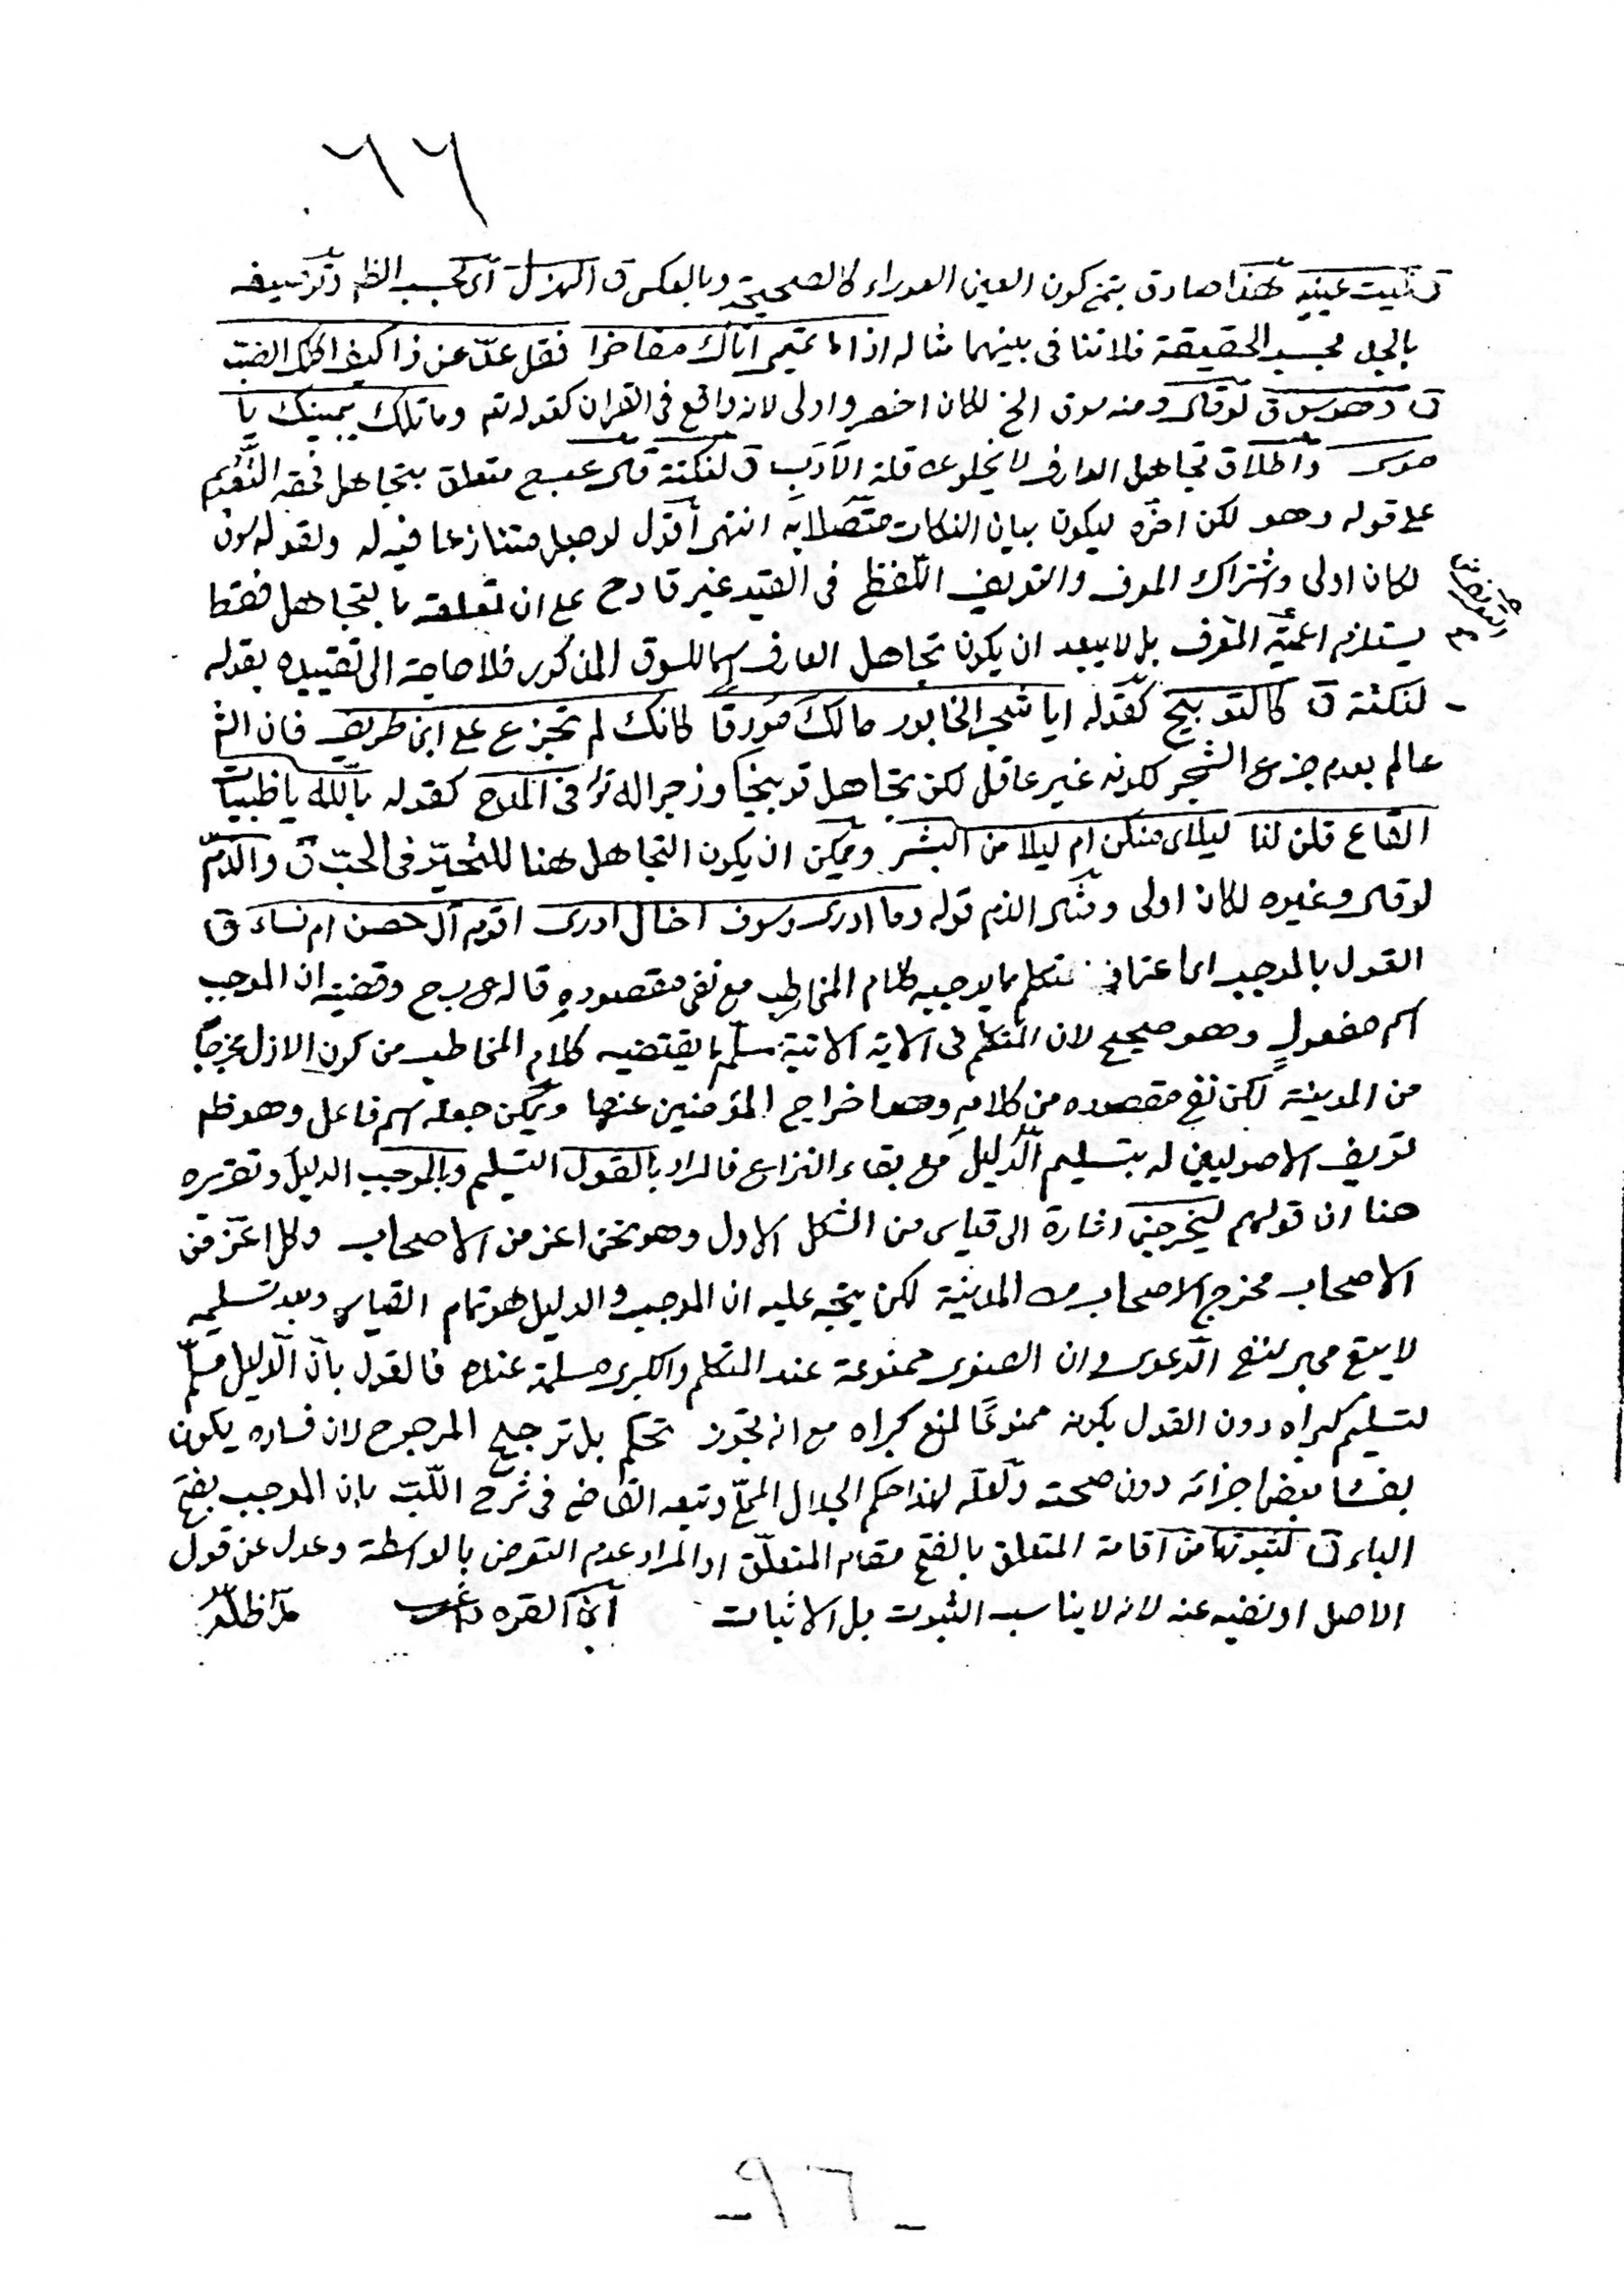 ٦٦
ق ليت عينيه فهذا صادق بتمني كون العين العوراء كالصحيحة وبالعكس ق الهزل اى بحسب الظه وتوصيفه
بالجد بحسب الحقيقة فلا تنافى بينهما مثاله اذا ما تميمى اتاك مفاخرا فقل عدّ عن ذا كيف اكلك للضب
ق وهو سوق لو قال ومنه سوق الخ لكان اخصر واولى لانه واقع فى القران كقوله تع وما تلك بيمينك يا
موسى واطلاق تجاهل العارف لا يخلو عن قلة الأدب ق لنكتة قال متعلق بتجاهل فحقه التقديم
على قوله وهو لكن اخره ليكون بيان النكات متصلا به انتهى أقول لو جعل متنازعا فيه له ولقوله سوق
لكان اولى واشتراك المعرف والتعريف اللفظى فى القيد غير قادح على ان تعلقه بالتجاهل فقط
يستلزم اعمية المعرف بل لا يبعد ان يكون تجاهل العارف اسما للسوق المذكور فلا حاجة الى تقييده بقوله
لنكتة ق كالتوبيخ كقوله ايا شجر الخابور مالك مورقا كانك لم تجزع على ابن طريف فان الش
عالم بعدم جزع الشجر لكونه غير عاقل لكن تجاهل توبيخا وزجرا له فى المدح كقوله بالله يا ظبيات
القاع قلن لنا ليلاى منكن ام ليلا من البشر ويمكن ان يكون التجاهل هنا للتحيّر فى الحبّ ق والذمّ
لو قال وغيره لكان اولى ومثال الذم قوله وما ادرى وسوف اخال ادرى اقوم آل حصن ام نساء ق
القول بالموجب اى اعتراف المتكلم بما يوجبه كلام المخاطب مع نفى مقصوده قاله وقضيته ان الموجب
اسم مفعول وهو صحيح لان المتكلم فى الاية الاتية سلّم ما يقتضيه كلام المخاطب من كون الاذل مخرجا
من المدينة لكن نفى مقصوده من كلامه وهو اخراج المؤمنين عنها ويمكن جعله اسم فاعل وهو ظه
تعريف الاصوليين له بتسليم الدّليل مع بقاء النزاع فالمراد بالقول التسليم وبالموجب الدليل وتقريره
هنا ان قولهم ليخرجنّ اشارة الى قياس من الشكل الاول وهو نحن اعز من الاصحاب وكل اعزّ من
الاصحاب مخرج الاصحاب من المدينة لكن يتجه عليه ان الموجب والدليل هو تمام القياس وبعد تسليمه
لا يبقى مجال لمنع الدّعوى وان الصغرى ممنوعة عند المتكلم والكبرى مسلمة عنده فالقول بأنّ الدّليل مسلّم
لتسليم كبراه دون القول بكونه ممنوعًا لمنع مع انه تجوز تحكم بل ترجيح المرجوح لان فساده يكون
بفساد بعض اجزائه دون صحته ولعله لهذا حكم الجلال المحلّى وتبعه القاضى فى شرح اللّبّ بان الموجب بفتح
الباء ق لثبوتها من اقامة المتعلق بالفتح مقام المتعلّق او المراد عدم التعرض بالواسطة وعدل عن قول
الاصل او نفيه عنه لانه لا يناسب الثبوت بل الاثبات ابن القره داغى مدّ ظلّه
- ٩٦ -